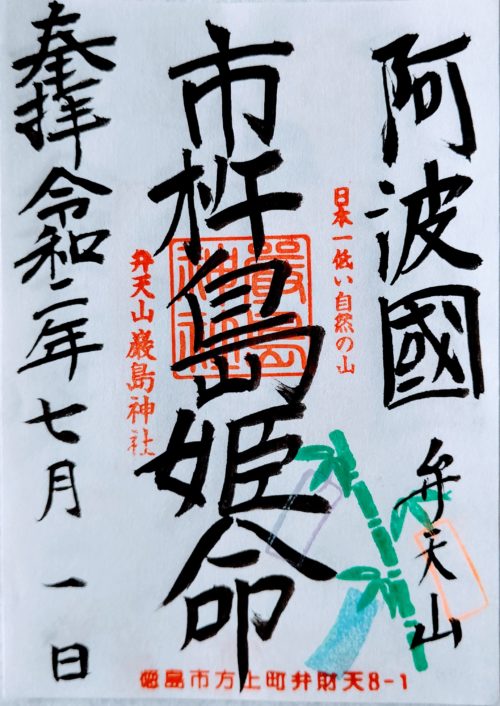 阿波國
弁天山
日本一低い自然の山
市杵島姫命
嚴島神社
弁天山 厳島神社
奉拝 令和二年七月一日
徳島市方上町弁財天8-1